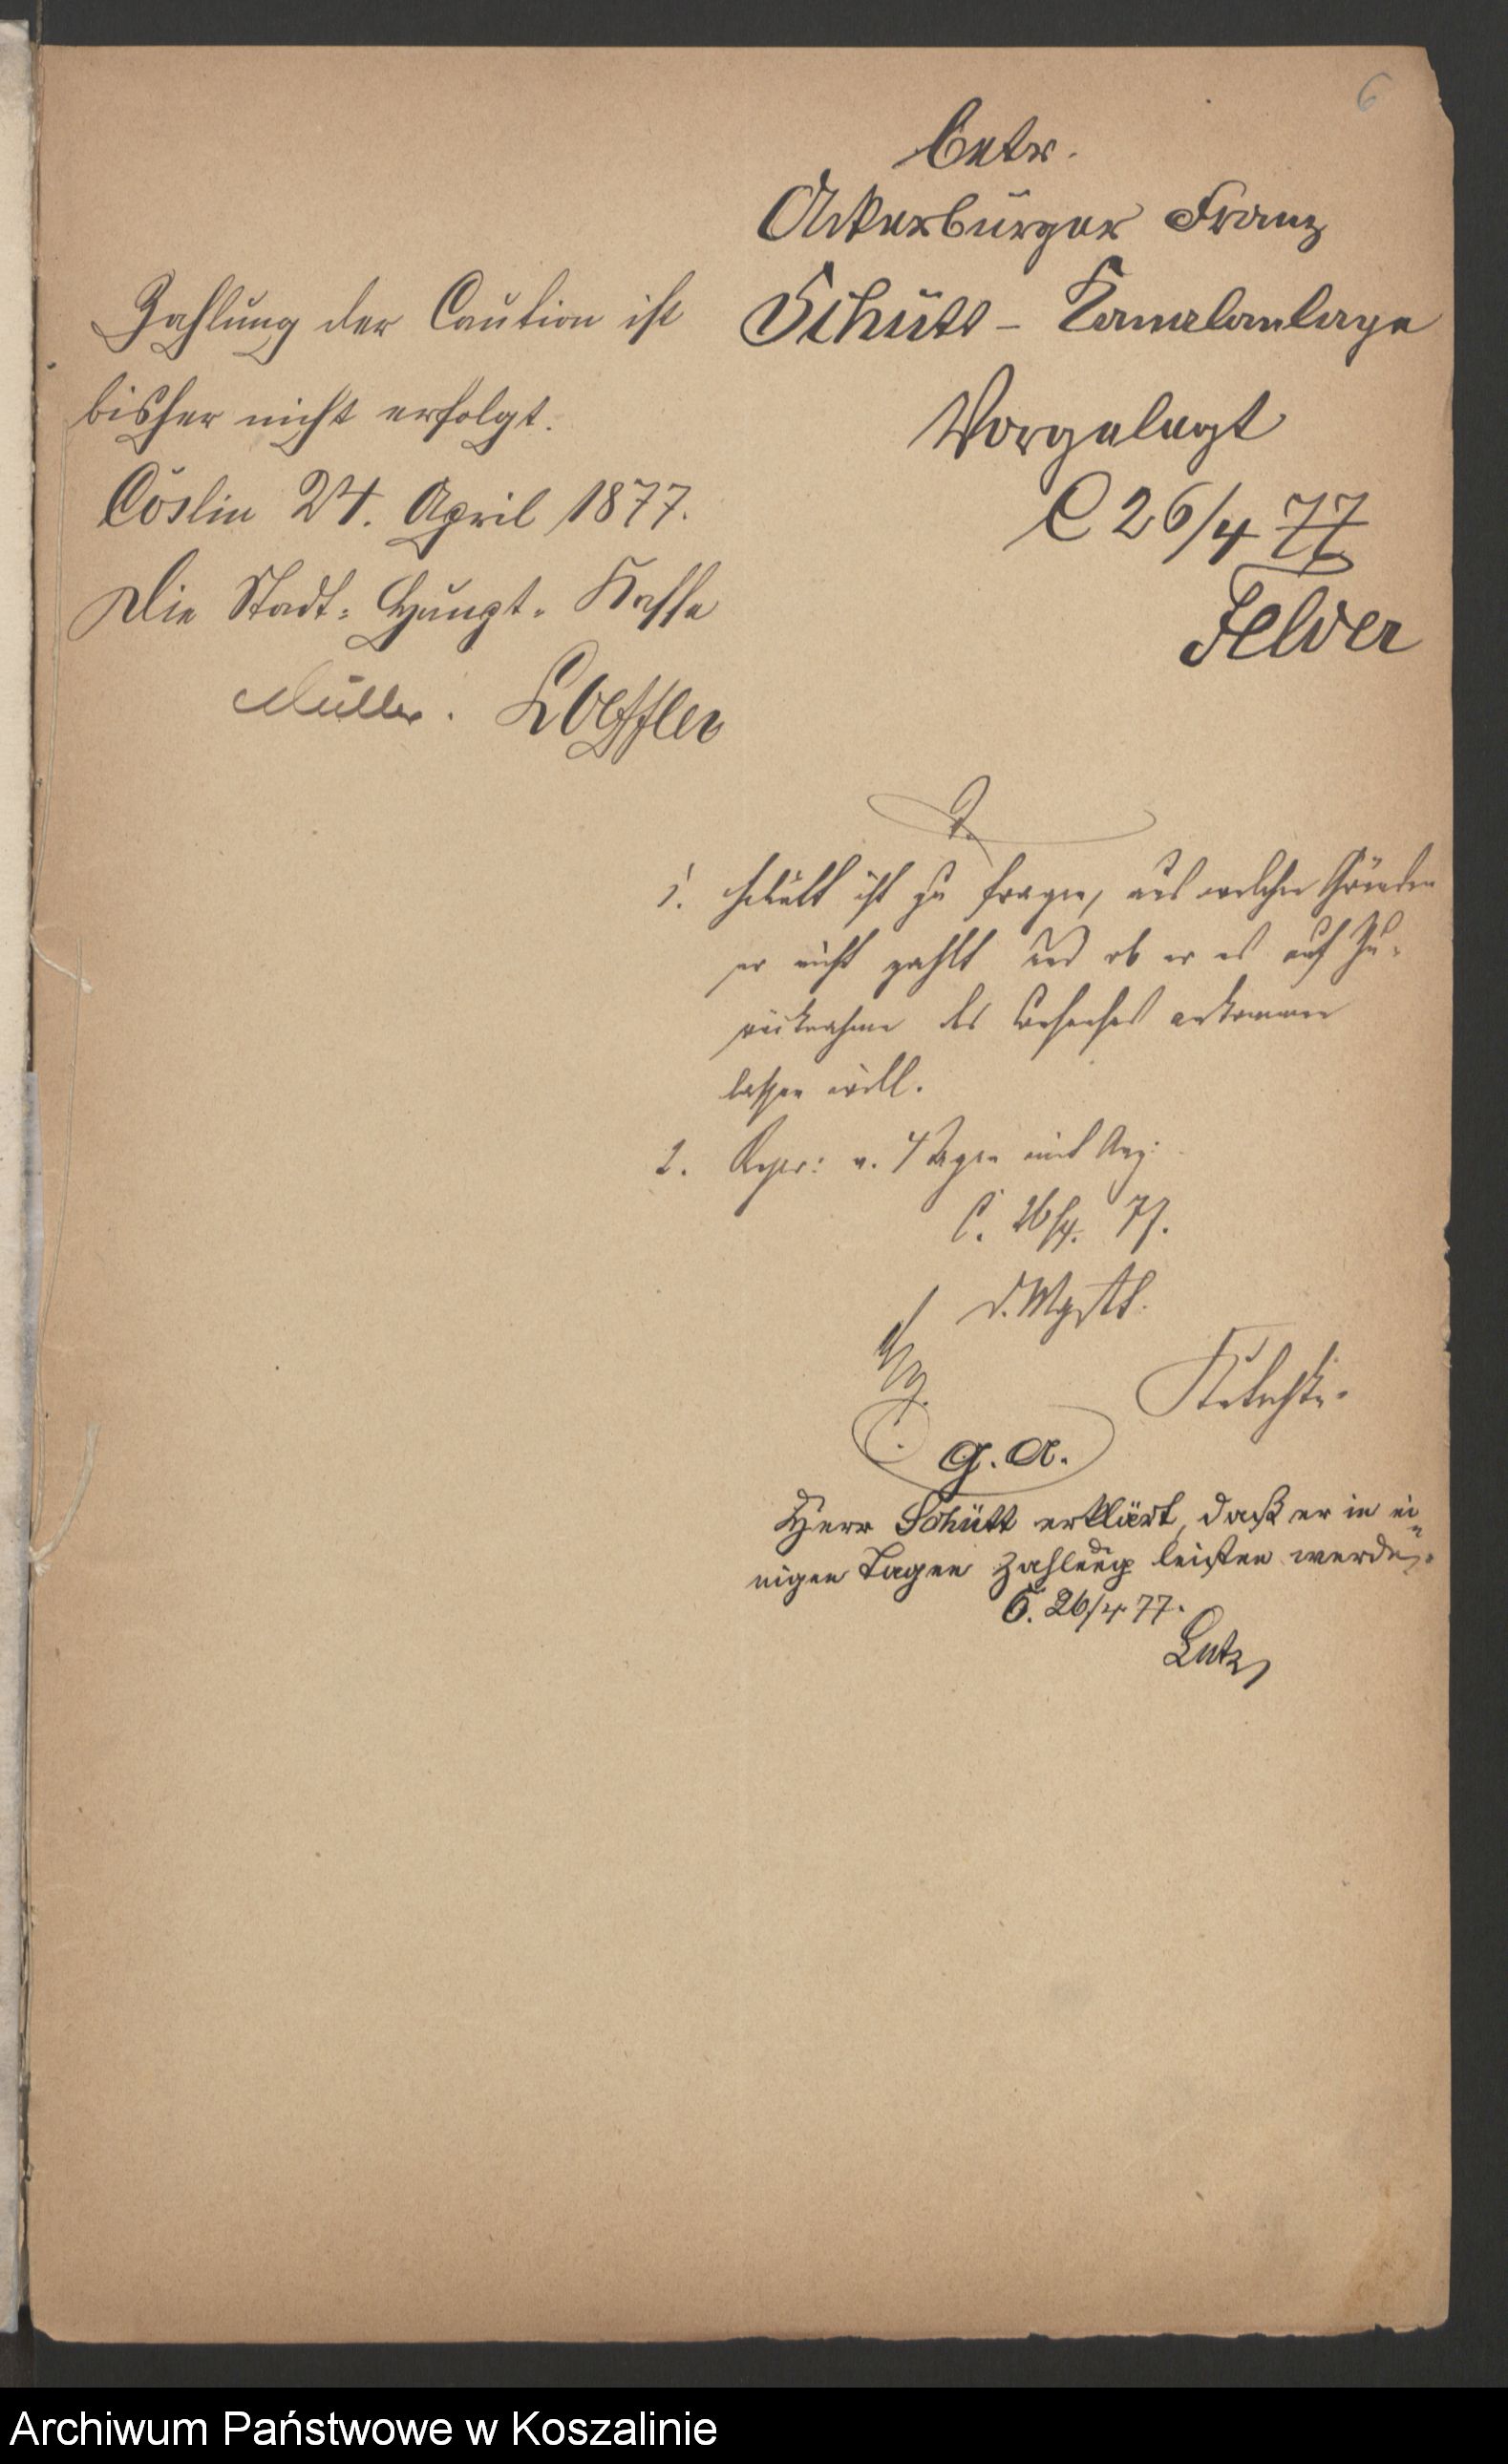 6
betr.
Ackerbürger Franz
Schütt - Kanalanlage
Vorgelegt
C 26/4 77
Felver
Zahlung der Caution ist
bisher nicht erfolgt.
Cöslin 24. April 1877.
Die Stadt-Haupt-Kasse
Müller. Loeffler
1. Schütt ist zu fragen, aus welchen Gründen
er nicht zahlt und ob er es auf Zu-
rücknahme des Consenses ankommen
lassen will.
2. Repr: n. 4 Tagen mit Anz:
C. 26/4. 77.
d. Mgstt.
g. a.
Herr Schütt erklärt, daß er in ei-
nigen Tagen Zahlung leisten werde.
C. 26/4 77.
Lutz
Archiwum Państwowe w Koszalinie